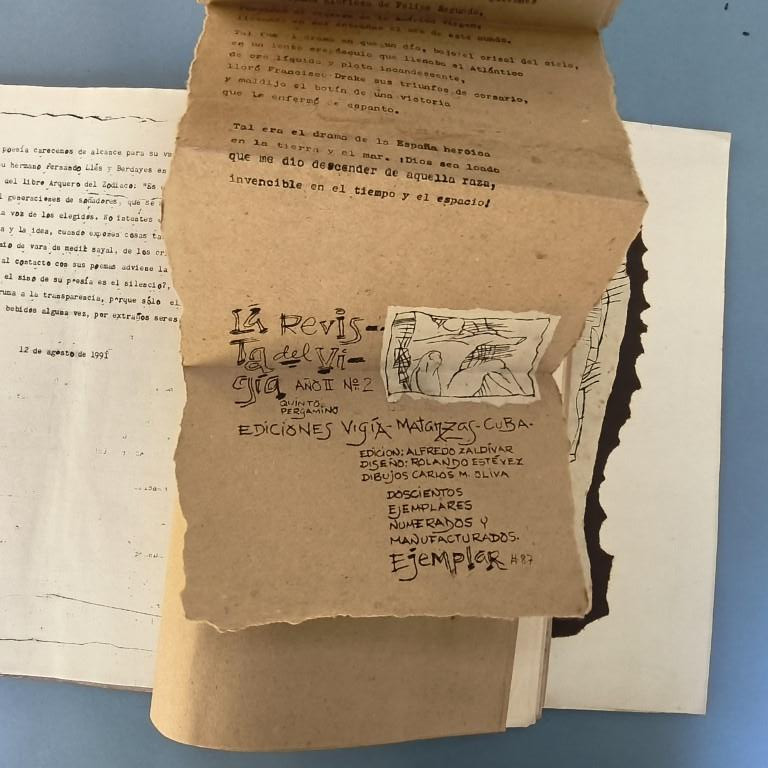 poesía carecemos de alcance para su
su hermano Fernando Llés y Berdayes en
del libro Arquero del Zodíaco: "Es
generaciones de soñadores, que se
a voz de los elegidos. No intentes
a y la idea, cuando expones cosas
de vara de medir sayal, de los
al contacto con sus poemas adviene la
el sino de su poesía es el silencio?,
a la transparencia, porque sólo el
bebidos alguna vez, por extraños seres
12 de agosto de 1991
gloriosa de Felipe Segundo,
de la América virgen,
el oro de este mundo.
Tal fue el drama en que un día, bajo el crisol del cielo,
en un lento espectáculo que llenaba el Atlántico
de oro líquido y plata incandescente,
lloró Francisco Drake sus triunfos de corsario,
y maldijo el botín de una victoria
que le enfermó de espanto.
Tal era el drama de la España heroica
en la tierra y el mar. ¡Dios sea loado
que me dio descender de aquella raza,
invencible en el tiempo y el espacio!
LA REVIS-
TA del Vi-
gía AÑO II Nº 2
QUINTO
PERGAMINO
EDICIONES VIGÍA-MATANZAS-CUBA.
EDICION: ALFREDO ZALDÍVAR
DISEÑO: ROLANDO ESTÉVEZ
DIBUJOS CARLOS M. OLIVA
DOSCIENTOS
EJEMPLARES
NUMERADOS Y
MANUFACTURADOS.
EjEMPlAR #87